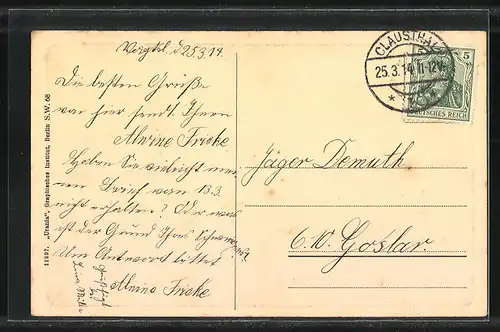 d 25.3.14.
Die besten Grüße
von hier sendt Ihnen
Alwine Fricke
Haben Sie vielleicht mei-
nen Brief vom 13.3.
nicht erhalten? Oder was
ist der Grund Ihres Schweigens?
Um Antwort bittet
Alwine Fricke
11997. „Urania", Graphisches Institut, Berlin S.W. 68
CLAUSTHAL
25.3.14. 11-12V.
5
DEUTSCHES REICH
Jäger Demuth
Goslar.